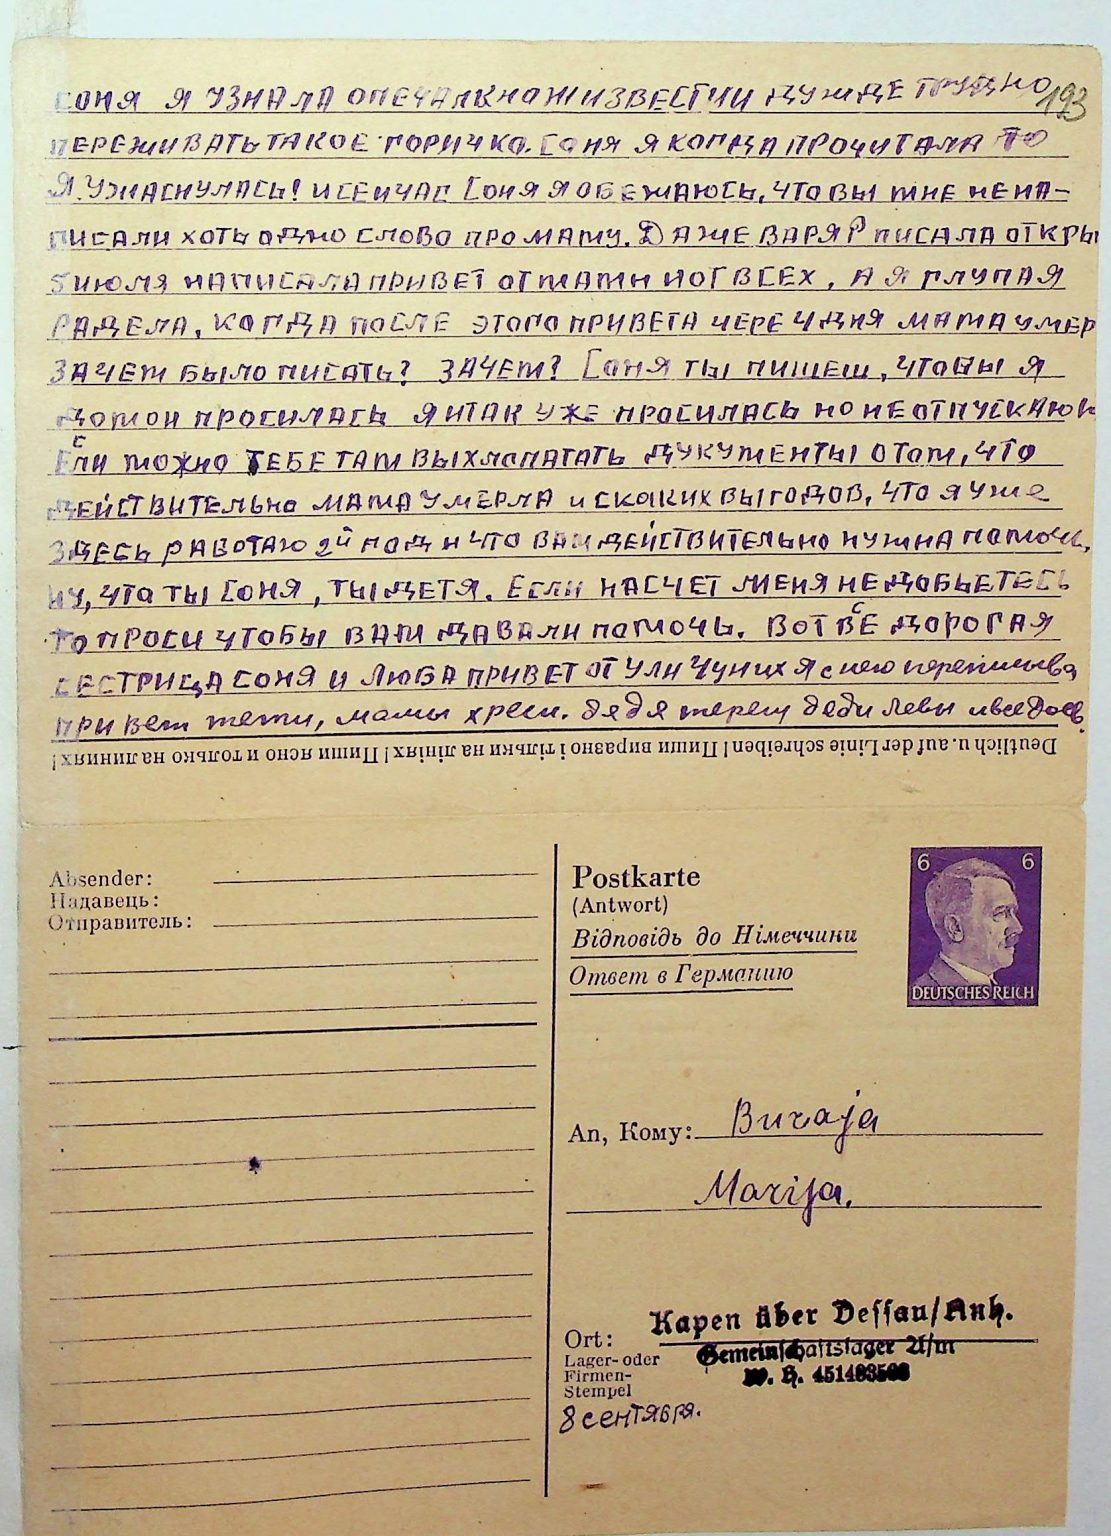 СОНЯ Я УЗНАЛА О ПЕЧАЛКНОЖ ИЗВЕСТИИ ДУЖДЕ ТРУДНО
193
ПЕРЕЖИВАТЬ ТАКОЕ ГОРИЧКО. СОНЯ Я КОГДА ПРОЧИТАЛА ТО
Я УЖАСНУЛАСЬ! И СЕЙЧАС СОНЯ Я ОБЕЖАЮСЬ, ЧТО ВЫ МНЕ НЕ НА-
ПИСАЛИ ХОТЬ ОДНО СЛОВО ПРО МАМУ. ДАЖЕ ВАРЯ ПИСАЛА ОТКРЫ
5 ИЮЛЯ НАПИСАЛА ПРИВЕТ ОТ МАМЫ И ОТ ВСЕХ, А Я ГЛУПАЯ
РАДЕЛА, КОГДА ПОСЛЕ ЭТОГО ПРИВЕТА ЧЕРЕ 4 ДНЯ МАМА УМЕР
ЗАЧЕМ БЫЛО ПИСАТЬ? ЗАЧЕМ? СОНЯ ТЫ ПИШЕШ, ЧТОБЫ Я
ДОМОЙ ПРОСИЛАСЬ Я И ТАК УЖЕ ПРОСИЛАСЬ НО НЕ ОТПУСКАЮ
ЕСЛИ МОЖНО ТЕБЕ ТАМ ВЫХЛОПАТАТЬ ДУКУМЕНТЫ О ТОМ, ЧТО
ДЕЙСТВИТЕЛЬНО МАМА УМЕРЛА И СКАКИХ ВЫ ГОДОВ, ЧТО Я УЖЕ
ЗДЕСЬ РАБОТАЮ 2й ГОД И ЧТО ВАМ ДЕЙСТВИТЕЛЬНО НУЖНА ПОМОЧЬ,
НУ, ЧТО ТЫ СОНЯ, ТЫ ДЕТЯ. ЕСЛИ НАСЧЕТ МЕНЯ НЕ ДОБЬЕТЕСЬ
ТО ПРОСИ ЧТОБЫ ВАМ ДАВАЛИ ПОМОЧЬ. ВОТ ВСЕ ДОРОГАЯ
СЕСТРИЦА СОНЯ И ЛЮБА ПРИВЕТ ОТ УЛИ Я с нею переписыва
привет тети, мамы хресн. дядя деди Левы и
Deutlich u. auf der Linie schreiben! Пиши виразно і тільки на лініях! Пиши ясно и только на линиях!
Absender:
Надавець:
Отправитель:
Postkarte
(Antwort)
Відповідь до Німеччини
Ответ в Германию
6 6
DEUTSCHES REICH
An, Кому: Buraja
Marija.
Kapen über Dessau/Anh.
Ort:
Gemeinschaftslager A/m
Lager- oder
Firmen-
Stempel
W. H.
8 СЕНТЯБРЯ.